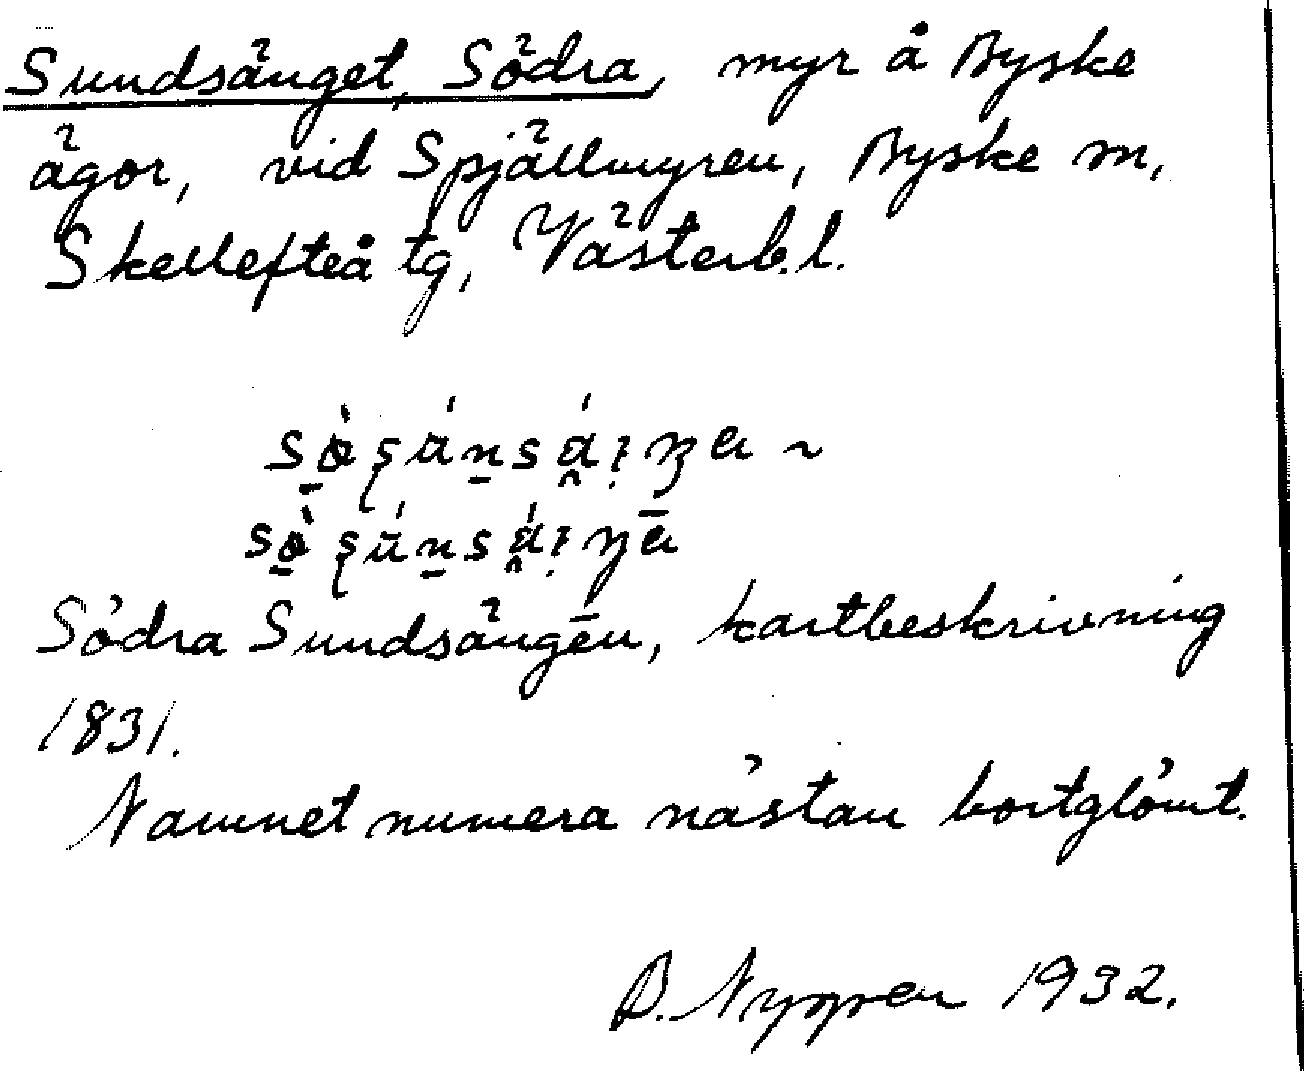 Sundsänget, Södra, myr å Byske
ägor, vid Spjällmyren, Byske sn,
Skellefteå tg, Västerb.l.
Södra Sundsängēn, kartbeskrivning
1831.
Namnet numera nästan bortglömt.
B. Nygren 1932.